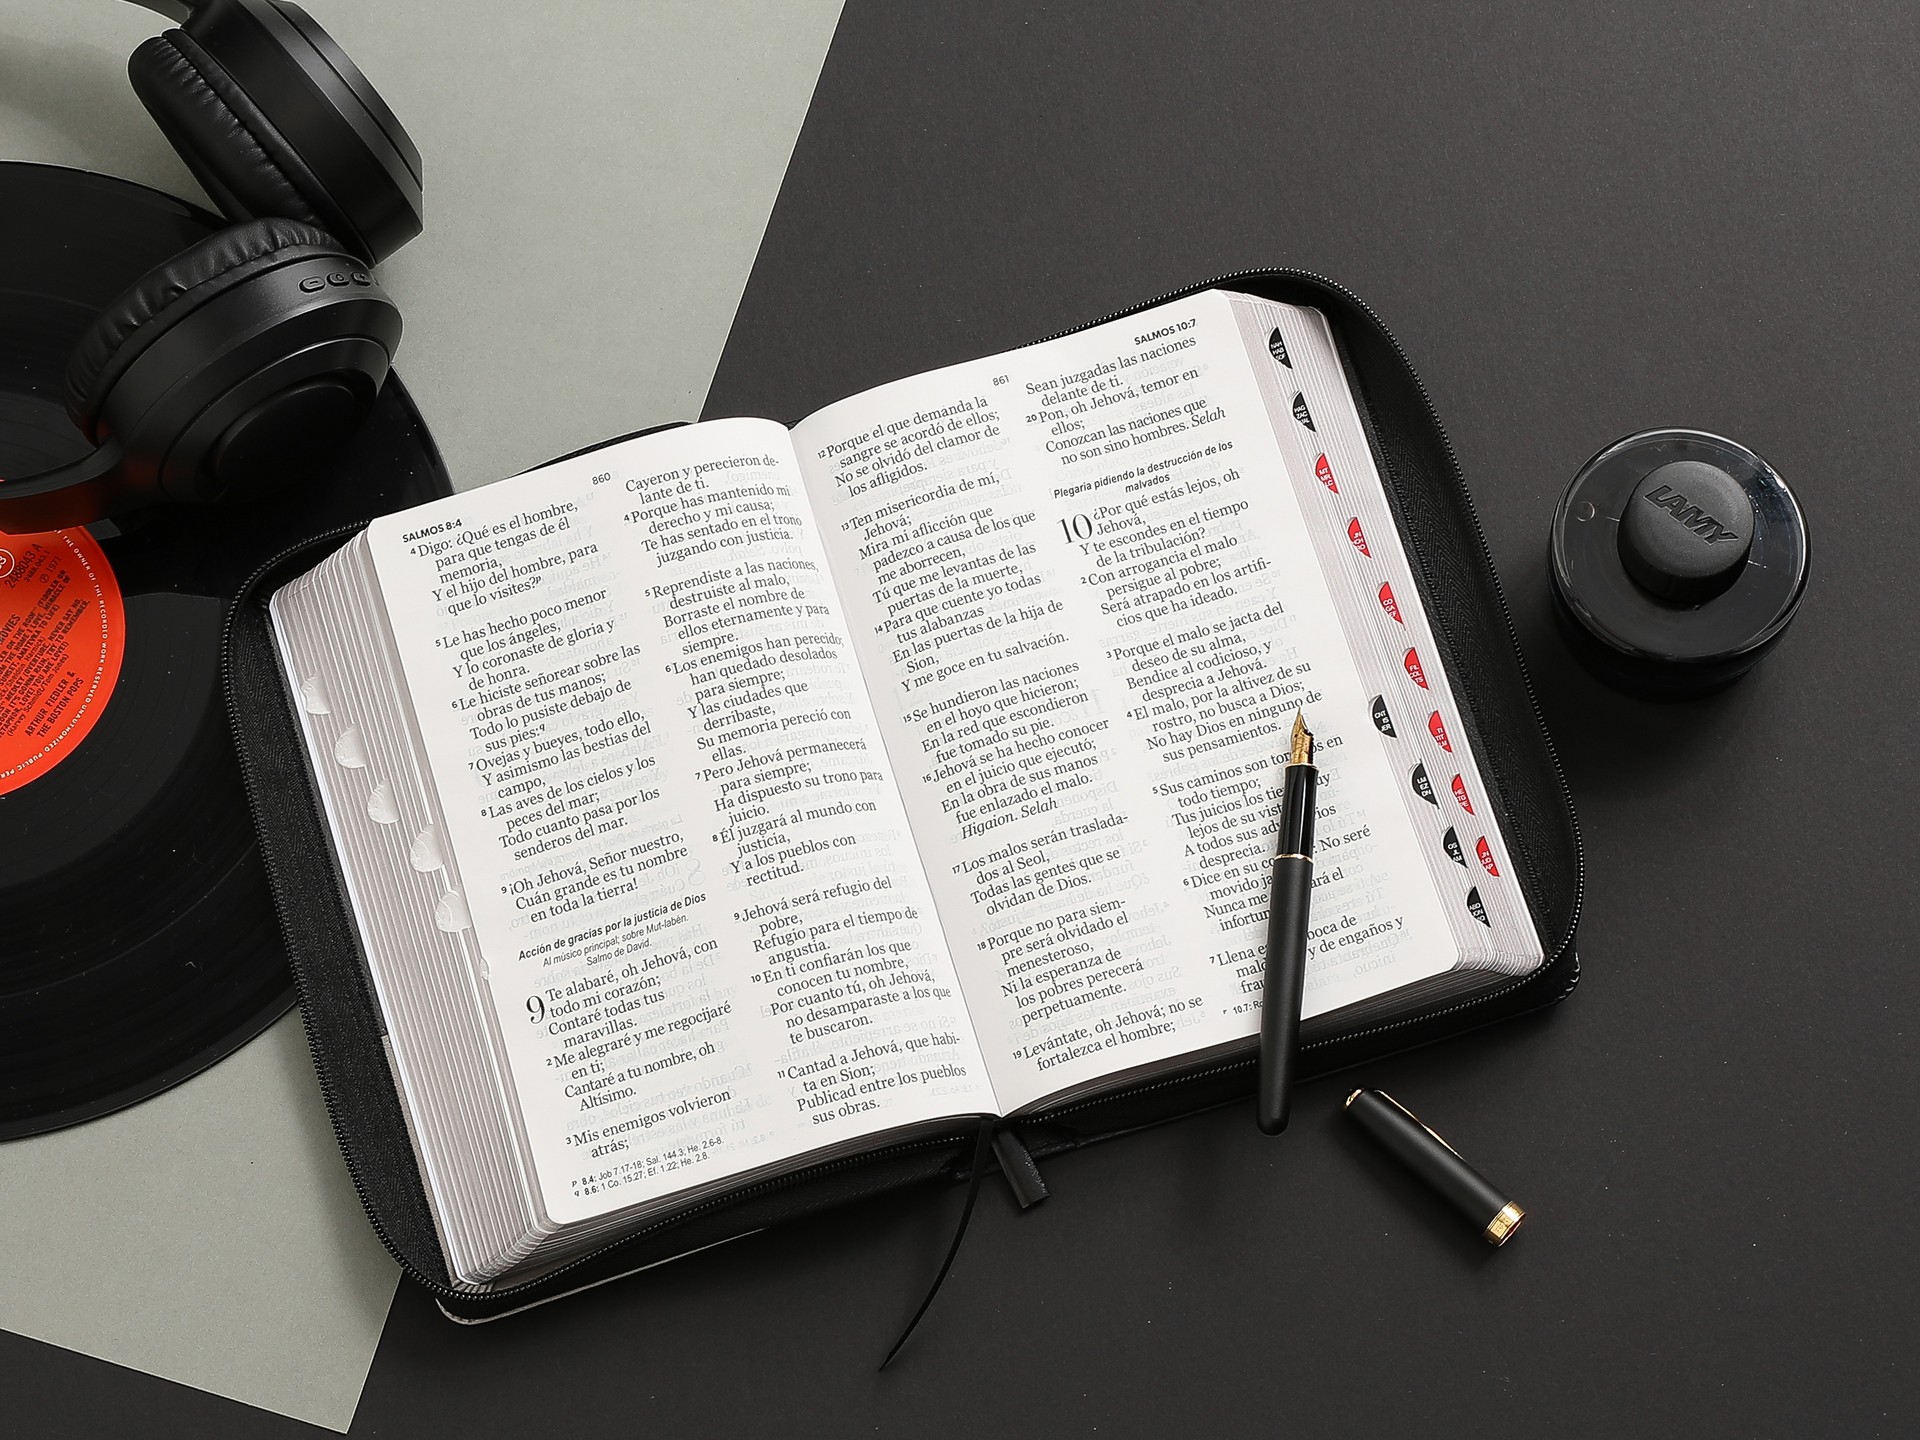 SALMOS 8:4
860
4 Digo: ¿Qué es el hombre,
para que tengas de él
memoria,
Y el hijo del hombre, para
que lo visites?p
5 Le has hecho poco menor
que los ángeles,
Y lo coronaste de gloria y
de honra.
6 Le hiciste señorear sobre las
obras de tus manos;
Todo lo pusiste debajo de
sus pies:q
7 Ovejas y bueyes, todo ello,
Y asimismo las bestias del
campo,
8 Las aves de los cielos y los
peces del mar;
Todo cuanto pasa por los
senderos del mar.
9 ¡Oh Jehová, Señor nuestro,
Cuán grande es tu nombre
en toda la tierra!
Acción de gracias por la justicia de Dios
Al músico principal; sobre Mut-labén.
Salmo de David.
9 Te alabaré, oh Jehová, con
todo mi corazón;
Contaré todas tus
maravillas.
2 Me alegraré y me regocijaré
en ti;
Cantaré a tu nombre, oh
Altísimo.
3 Mis enemigos volvieron
atrás;
p 8.4: Job 7.17-18; Sal. 144.3; He. 2.6-8.
q 8.6: 1 Co. 15.27; Ef. 1.22; He. 2.8.
Cayeron y perecieron de-
lante de ti.
4 Porque has mantenido mi
derecho y mi causa;
Te has sentado en el trono
juzgando con justicia.
5 Reprendiste a las naciones,
destruiste al malo,
Borraste el nombre de
ellos eternamente y para
siempre.
6 Los enemigos han perecido;
han quedado desolados
para siempre;
Y las ciudades que
derribaste,
Su memoria pereció con
ellas.
7 Pero Jehová permanecerá
para siempre;
Ha dispuesto su trono para
juicio.
8 Él juzgará al mundo con
justicia,
Y a los pueblos con
rectitud.
9 Jehová será refugio del
pobre,
Refugio para el tiempo de
angustia.
10 En ti confiarán los que
conocen tu nombre,
Por cuanto tú, oh Jehová,
no desamparaste a los que
te buscaron.
11 Cantad a Jehová, que habi-
ta en Sion;
Publicad entre los pueblos
sus obras.
861
SALMOS 10:7
12 Porque el que demanda la
sangre se acordó de ellos;
No se olvidó del clamor de
los afligidos.
13 Ten misericordia de mí,
Jehová;
Mira mi aflicción que
padezco a causa de los que
me aborrecen,
Tú que me levantas de las
puertas de la muerte,
14 Para que cuente yo todas
tus alabanzas
En las puertas de la hija de
Sion,
Y me goce en tu salvación.
15 Se hundieron las naciones
en el hoyo que hicieron;
En la red que escondieron
fue tomado su pie.
16 Jehová se ha hecho conocer
en el juicio que ejecutó;
En la obra de sus manos
fue enlazado el malo.
Higaion. Selah
17 Los malos serán traslada-
dos al Seol,
Todas las gentes que se
olvidan de Dios.
18 Porque no para siem-
pre será olvidado el
menesteroso,
Ni la esperanza de
los pobres perecerá
perpetuamente.
19 Levántate, oh Jehová; no se
fortalezca el hombre;
Sean juzgadas las naciones
delante de ti.
20 Pon, oh Jehová, temor en
ellos;
Conozcan las naciones que
no son sino hombres. Selah
Plegaria pidiendo la destrucción de los
malvados
10 ¿Por qué estás lejos, oh
Jehová,
Y te escondes en el tiempo
de la tribulación?
2 Con arrogancia el malo
persigue al pobre;
Será atrapado en los artifi-
cios que ha ideado.
3 Porque el malo se jacta del
deseo de su alma,
Bendice al codicioso, y
desprecia a Jehová.
4 El malo, por la altivez de su
rostro, no busca a Dios;
No hay Dios en ninguno de
sus pensamientos.
5 Sus caminos son en
todo tiempo;
Tus juicios los
lejos de su
A todos sus
desprecia.
6 Dice en su No seré
movido
Nunca me
7 Llena boca de
y de engaños y
r 10.7:
LAMY
ARTHUR FIEDLER &
THE BOSTON POPS